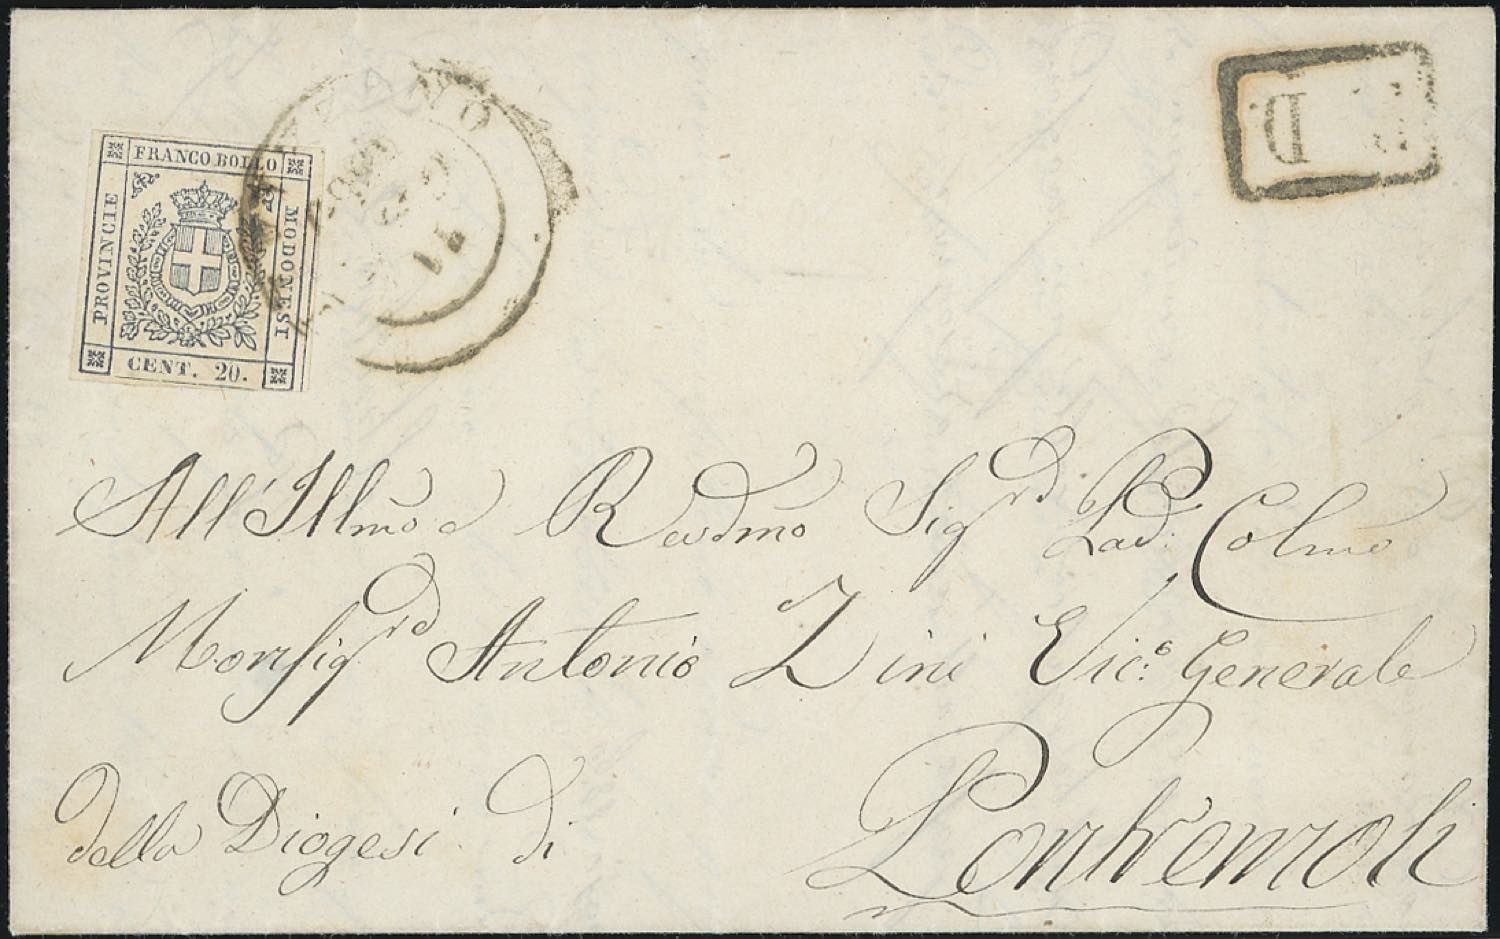 FRANCO BOLLO
PROVINCIE
MODONESI
CENT. 20.
P. D.
All' Illmo e Revdmo Sigr Pad: Colmo
Monsigr Antonio Zini Vic.o Generale
della Diogesi di
Pontremoli